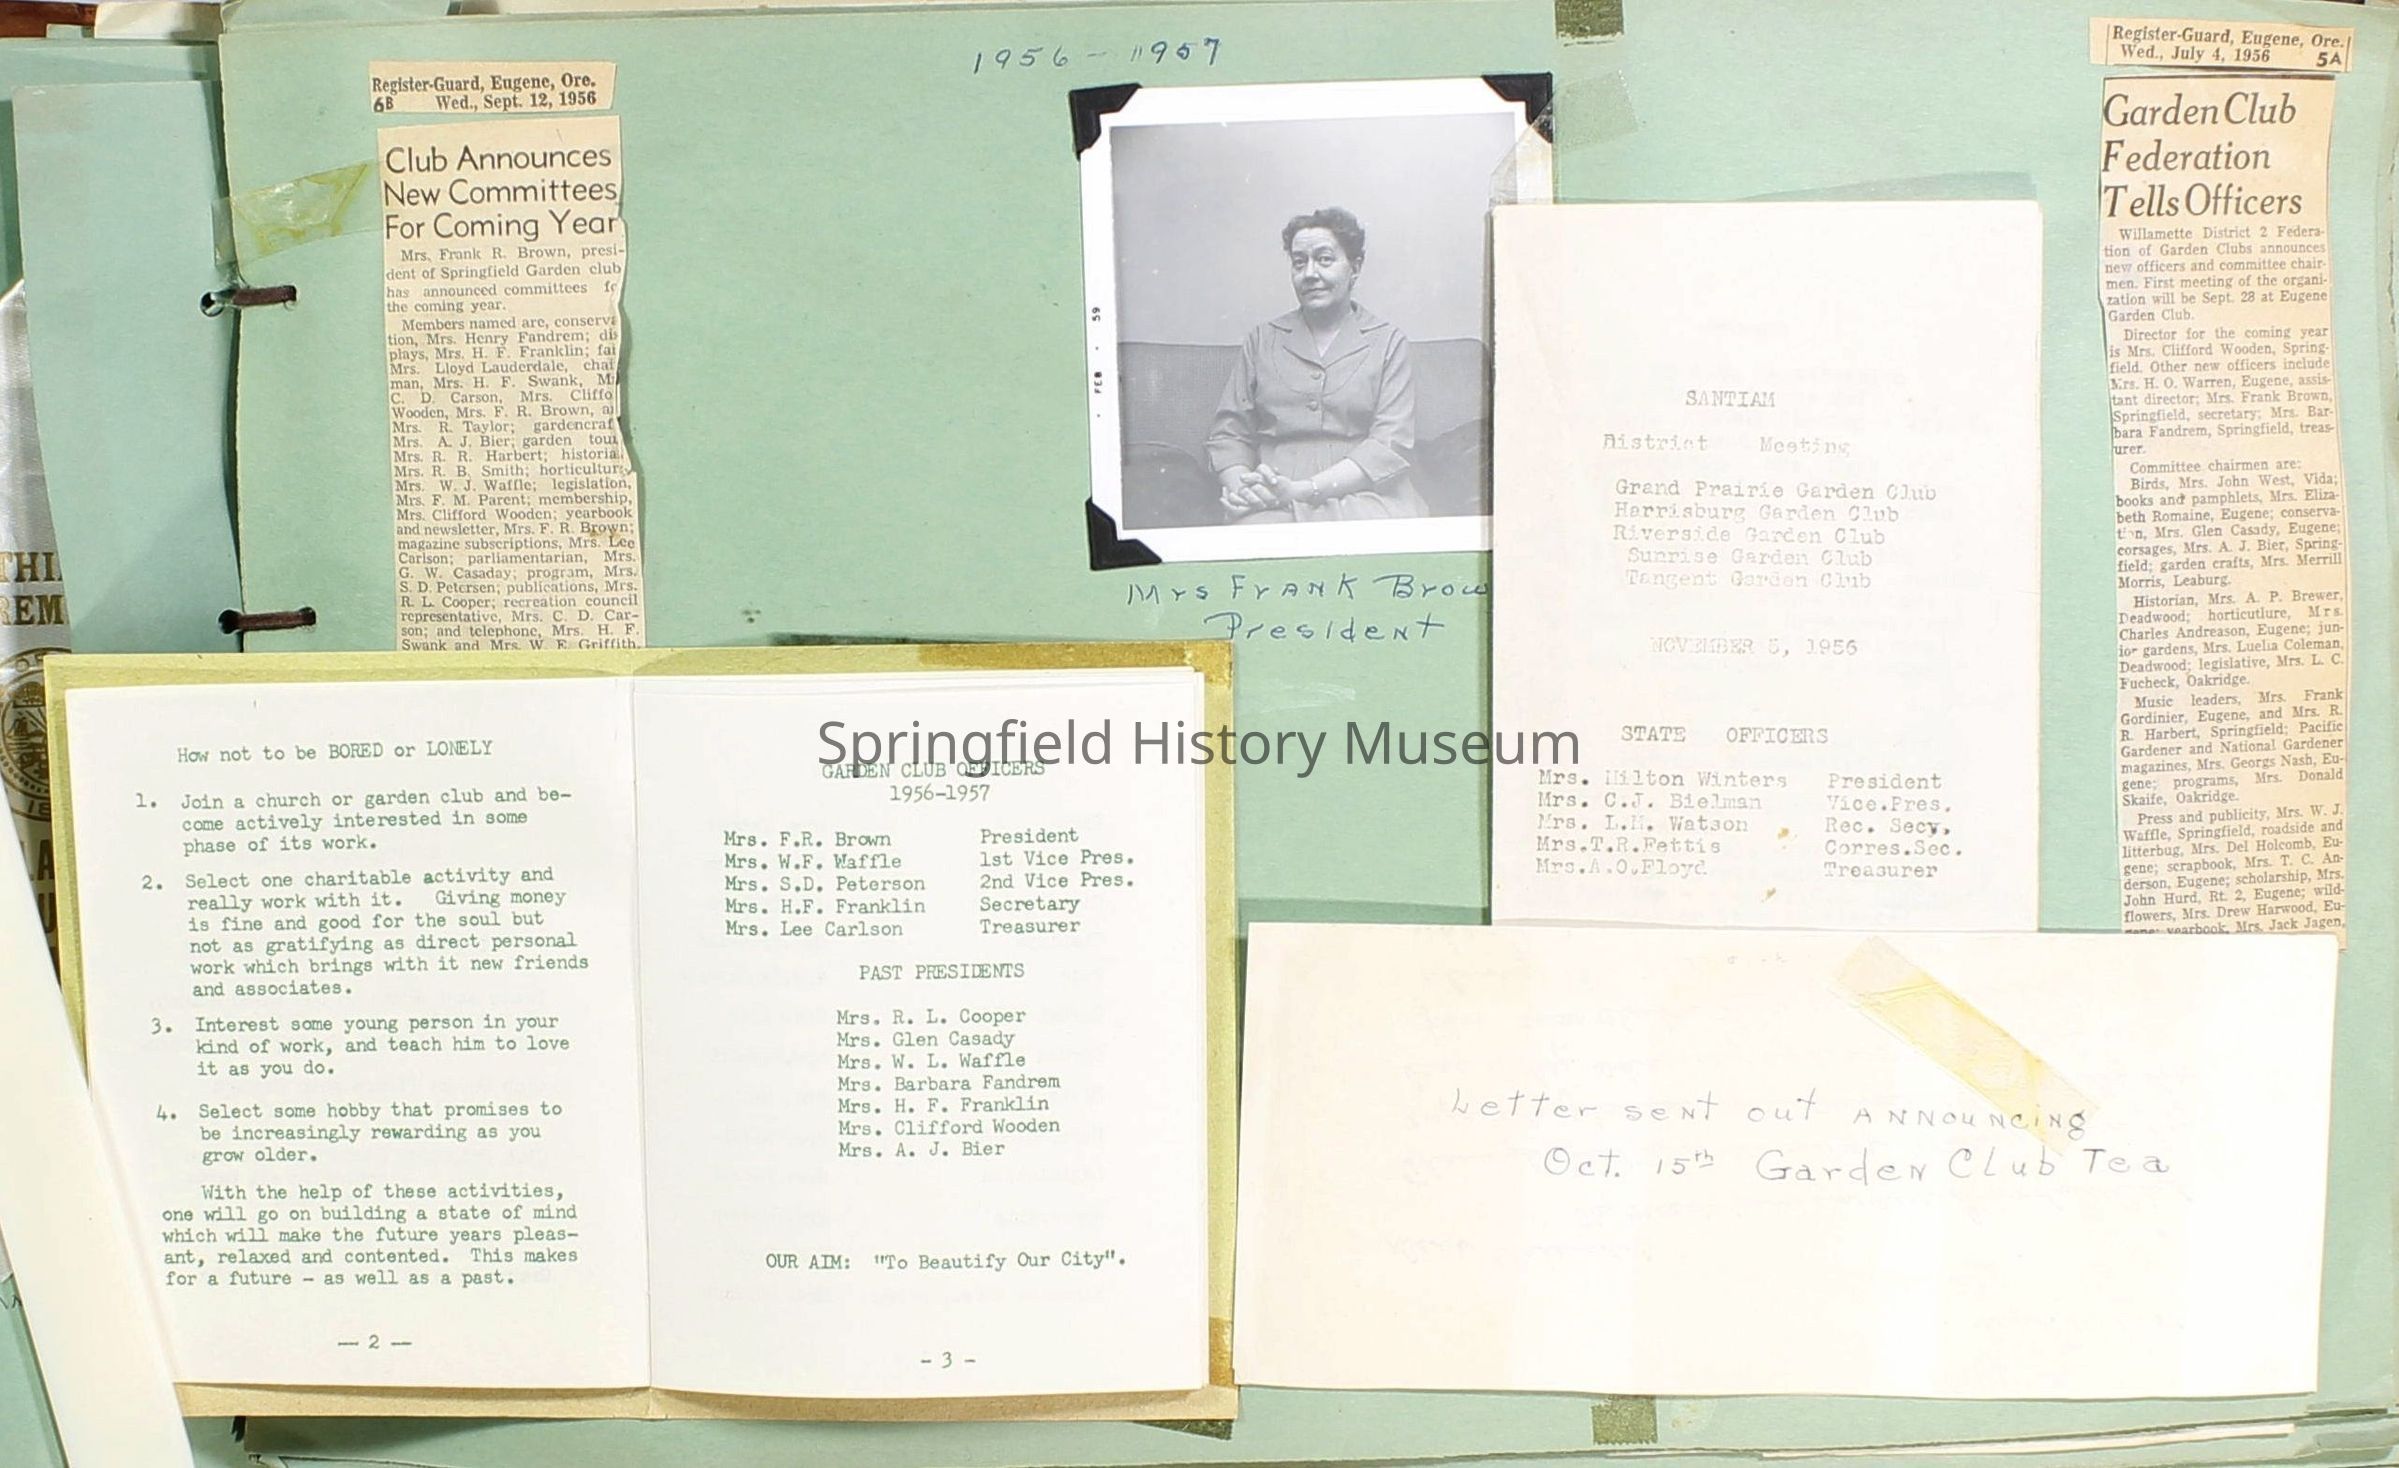 1956 - 1957
Register-Guard, Eugene, Ore.
6B Wed., Sept. 12, 1956
Club Announces
New Committees
For Coming Year
Mrs. Frank R. Brown, presi-
dent of Springfield Garden club
has announced committees
the coming year.
Members named are, conserva
tion, Mrs. Henry Fandrem; dis
plays, Mrs. H. F. Franklin; fai
Mrs. Lloyd Lauderdale, chai
man, Mrs. H. F. Swank, M
C. D. Carson, Mrs. Cliffo
Wooden, Mrs. F. R. Brown, a
Mrs. R. Taylor; gardencraf
Mrs. A. J. Bier; garden tour
Mrs. R. R. Harbert; historia
Mrs. R. B. Smith; horticultur
Mrs. W. J. Waffle; legislation,
Mrs. F. M. Parent; membership,
Mrs. Clifford Wooden; yearbook
and newsletter, Mrs. F. R. Brown;
magazine subscriptions, Mrs. Lee
Carlson; parliamentarian, Mrs.
G. W. Casaday; program, Mrs.
S. D. Petersen; publications, Mrs.
R. L. Cooper; recreation council
representative, Mrs. C. D. Car-
son; and telephone, Mrs. H. F.
Swank and Mrs. W. E. Griffith.
FEB 59
Mrs Frank Brow
President
SANTIAM
District Meeting
Grand Prairie Garden Club
Harrisburg Garden Club
Riverside Garden Club
Sunrise Garden Club
Tangent Garden Club
NOVEMBER 5, 1956
STATE OFFICERS
Mrs. Hilton Winters President
Mrs. C.J. Bielman Vice.Pres.
Mrs. L.M. Watson Rec. Secy.
Mrs.T.R.Fettis Corres.Sec.
Mrs.A.O.Floyd Treasurer
Register-Guard, Eugene, Ore.
Wed., July 4, 1956 5A
Garden Club
Federation
Tells Officers
Willamette District 2 Federa-
tion of Garden Clubs announces
new officers and committee chair-
men. First meeting of the organi-
zation will be Sept. 28 at Eugene
Garden Club.
Director for the coming year
is Mrs. Clifford Wooden, Spring-
field. Other new officers include
Mrs. H. O. Warren, Eugene, assis-
tant director; Mrs. Frank Brown,
Springfield, secretary; Mrs. Bar-
bara Fandrem, Springfield, treas-
urer.
Committee chairmen are:
Birds, Mrs. John West, Vida;
books and pamphlets, Mrs. Eliza-
beth Romaine, Eugene; conserva-
tion, Mrs. Glen Casady, Eugene;
corsages, Mrs. A. J. Bier, Spring-
field; garden crafts, Mrs. Merrill
Morris, Leaburg.
Historian, Mrs. A. P. Brewer,
Deadwood; horticutlure, Mrs.
Charles Andreason, Eugene; jun-
ior gardens, Mrs. Luelia Coleman,
Deadwood; legislative, Mrs. L. C.
Fucheck, Oakridge.
Music leaders, Mrs. Frank
Gordinier, Eugene, and Mrs. R.
R. Harbert, Springfield; Pacific
Gardener and National Gardener
magazines, Mrs. Georgs Nash, Eu-
gene; programs, Mrs. Donald
Skaife, Oakridge.
Press and publicity, Mrs. W. J.
Waffle, Springfield, roadside and
litterbug, Mrs. Del Holcomb, Eu-
gene; scrapbook, Mrs. T. C. An-
derson, Eugene; scholarship, Mrs.
John Hurd, Rt. 2, Eugene; wild-
flowers, Mrs. Drew Harwood, Eu-
gene; yearbook, Mrs. Jack Jagen,
Springfield History Museum
How not to be BORED or LONELY
1. Join a church or garden club and be-
come actively interested in some
phase of its work.
2. Select one charitable activity and
really work with it. Giving money
is fine and good for the soul but
not as gratifying as direct personal
work which brings with it new friends
and associates.
3. Interest some young person in your
kind of work, and teach him to love
it as you do.
4. Select some hobby that promises to
be increasingly rewarding as you
grow older.
With the help of these activities,
one will go on building a state of mind
which will make the future years pleas-
ant, relaxed and contented. This makes
for a future - as well as a past.
— 2 —
GARDEN CLUB OFFICERS
1956-1957
Mrs. F.R. Brown President
Mrs. W.F. Waffle 1st Vice Pres.
Mrs. S.D. Peterson 2nd Vice Pres.
Mrs. H.F. Franklin Secretary
Mrs. Lee Carlson Treasurer
PAST PRESIDENTS
Mrs. R. L. Cooper
Mrs. Glen Casady
Mrs. W. L. Waffle
Mrs. Barbara Fandrem
Mrs. H. F. Franklin
Mrs. Clifford Wooden
Mrs. A. J. Bier
OUR AIM: "To Beautify Our City".
- 3 -
Letter sent out announcing
Oct. 15th Garden Club Tea